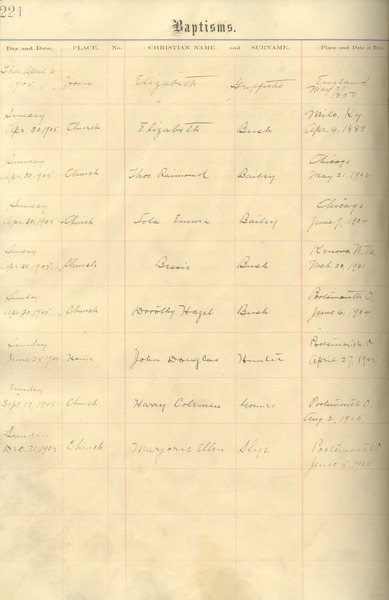 224
Baptisms.
Day and Date. PLACE. No. CHRISTIAN NAME and SURNAME. Place and Date of Birth.
Thu. April 2 England
1905 Home Elizabeth May 22
Sunday Milo, Ky
Apr. 30, 1905 Church Elizabeth Bush Apr. 4, 1883
Sunday Chicago
Apr. 30, 1905 Church Thos. Raimond Bailey May 21, 1902
Sunday Chicago
Apr. 30, 1905 Church Iola Emma Bailey June 7, 1904
Sunday Kenova W. Va.
Apr. 30, 1905 Church Bessie Bush Mch 20, 1901
Sunday Portsmouth O.
Apr. 30, 1905 Church Dorothy Hazel Bush June 6, 1904
Sunday Portsmouth O
June 25, 1905 Home John Douglas Hunter April 27, 190
Sunday
Sept. 17, 1905 Church Harry Coleman Portsmouth O.
Aug 2, 1905
Sunday
Dec. 31, 1905 Church Marjorie Ellen Slye Portsmouth O.
June 5, 1905